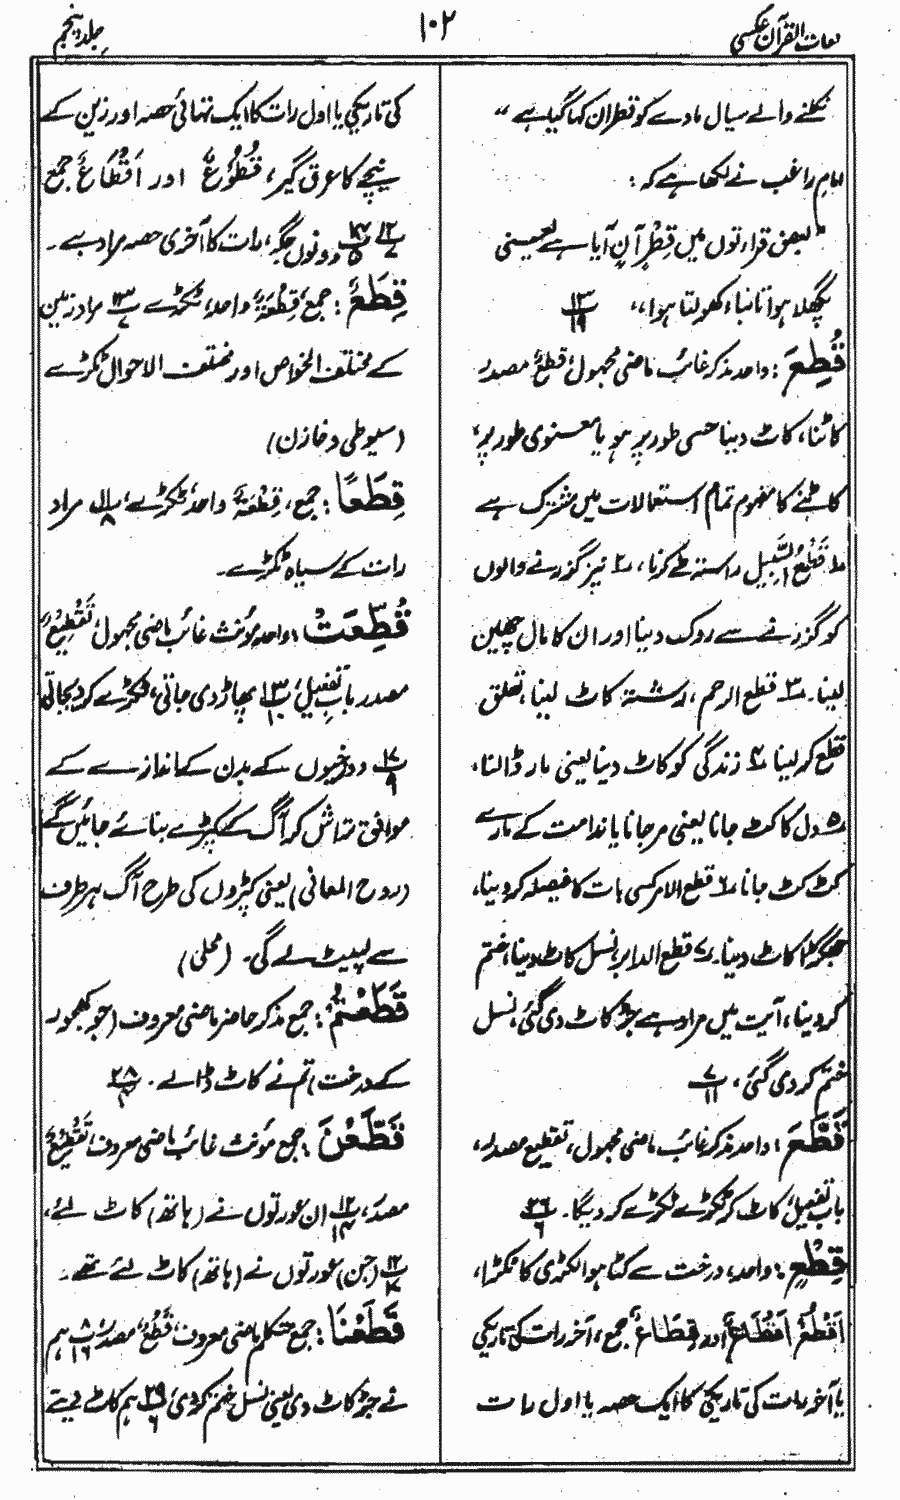 لغات القرآن عکسی
۱۰۲
جلد پنجم
نکلنے والے سیال مادے کو قطران کہا گیا ہے "
امام راغب نے لکھا ہے کہ :
"بعض قراءتوں میں قِطْرٍ آنٍ آیا ہے یعنی
پگھلا ہوا تانبا، کھولتا ہوا،، ۱۳/۱۹
قُطِعَ : واحد مذکر غائب ماضی مجہول قطعٌ مصدر
کاٹنا، کاٹ دینا حسی طور پر ہو یا معنوی طور پر،
کاٹنے کا مفہوم تمام استعمالات میں مشترک ہے
۱ قَطْعُ السَّبِیل راستہ طے کرنا، ۲ نیز گزرنے والوں
کو گزرنے سے روک دینا اور ان کا مال چھین
لینا۔ ۳ قطع الرحم، رشتہ کاٹ لینا، تعلق
قطع کر لینا ۴ زندگی کو کاٹ دینا یعنی مار ڈالنا،
۵ دل کا کٹ جانا یعنی مر جانا یا ندامت کے مارے
کٹ کٹ جانا ۶ قطع الامر کسی بات کا فیصلہ کر دینا،
جھگڑا کاٹ دینا۔ ۷ قطع الدابر، نسل کاٹ دینا، ختم
کر دینا، آیت میں مراد ہے جڑ کاٹ دی گئی، نسل
ختم کر دی گئی، ۷/۱۱
قَطَّعَ : واحد مذکر غائب ماضی مجہول، تقطیع مصدر،
باب تفعیل، کاٹ کر ٹکڑے ٹکڑے کر دیگا۔ ۲۶/۶
قِطْعٍ : واحد، درخت سے کٹا ہوا لکڑی کا ٹکڑا،
اَقْطُعُ اَقْطَاعٌ اور قِطَاعٌ جمع، آخر رات کی تاریکی
یا آخر رات کی تاریکی کا ایک حصہ یا اول رات
کی تاریکی یا اول رات کا ایک تہائی حصہ اور زین کے
نیچے کا عرق گیر، قُطُوْعٌ اور اَقْطَاعٌ جمع
دونوں جگہ، رات کا آخری حصہ مراد ہے۔
قِطَعٌ : جمع، قِطْعَۃٌ واحد، ٹکڑے ۱۳/۷ مراد زمین
کے مختلف الخواص اور مختلف الاحوال ٹکڑے
(سیوطی و خازن)
قِطَعًا : جمع، قِطْعَۃٌ واحد، ٹکڑے، پ۱۱/۸ مراد
رات کے سیاہ ٹکڑے۔
قُطِّعَتْ : واحد مؤنث غائب ماضی مجہول، تَقْطِیْعٌ
مصدر باب تفعیل، پ۱۳/۱۰ پھاڑ دی جاتی، ٹکڑے کر دی جاتی
۱۷/۹ دوزخیوں کے بدن کے اندازے کے
موافق تراش کر آگ کے کپڑے بنائے جائیں گے
(روح المعانی) یعنی کپڑوں کی طرح آگ ہر طرف
سے لپیٹ لے گی۔ (محلی)
قَطَعْتُمْ : جمع مذکر حاضر ماضی معروف (جو کھجور
کے درخت) تم نے کاٹ ڈالے۔ ۲۸/۴
قَطَّعْنَ : جمع مؤنث غائب ماضی معروف، تَقْطِیْعٌ
مصدر، ۱۲/۱۴ ان عورتوں نے (ہاتھ) کاٹ لئے،
(جن) عورتوں نے (ہاتھ) کاٹ لئے تھے۔
قَطَعْنَا : جمع متکلم ماضی معروف، قَطْعٌ مصدر، پ۸/۱۶ ہم
نے جڑ کاٹ دی یعنی نسل ختم کر دی، ۲۹/۶ ہم کاٹ دیتے